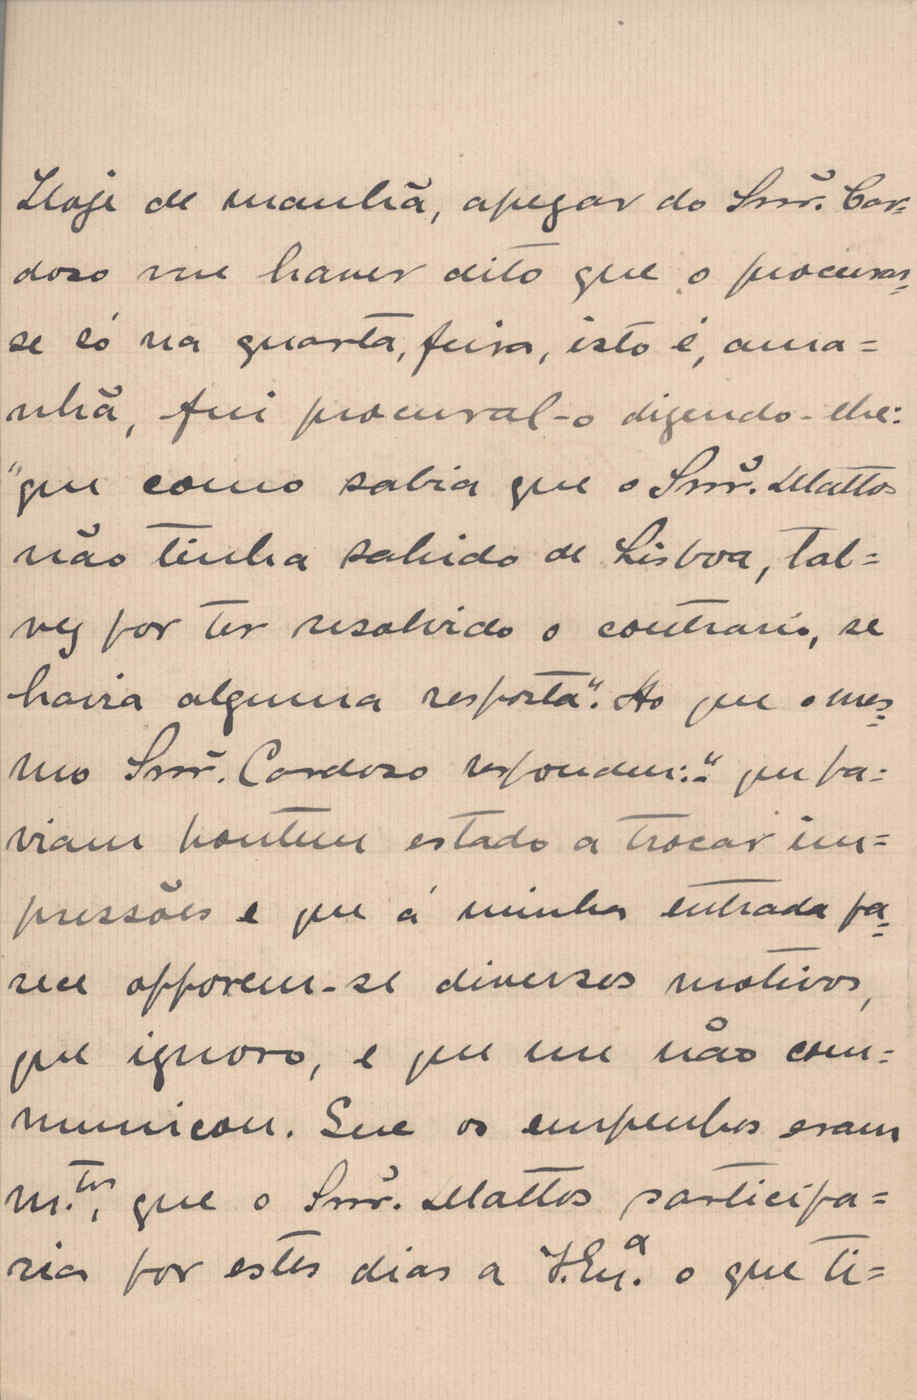 Hoje de manhã, apezar do Snr. Car=
dozo me haver dito que o procuras=
se só na quarta, feira, isto é, ama=
nhã, fui procural-o dizendo-lhe:
"que como sabia que o Snr. Mattos
não tinha sahido de Lisboa, tal=
vez por ter resolvido o contrario, se
havia alguma resposta". Ao que o mes=
mo Snr. Cardozo respondeu:-" que ha=
viam hontem estado a trocar im=
pressões e que á minha entrada pa=
rece opporem-se diversos motivos,
que ignoro, e que me não com=
municou. Que os empenhos eram
m.tos, que o Snr. Mattos participa=
ria por estes dias a V. Ex.ª o que ti=